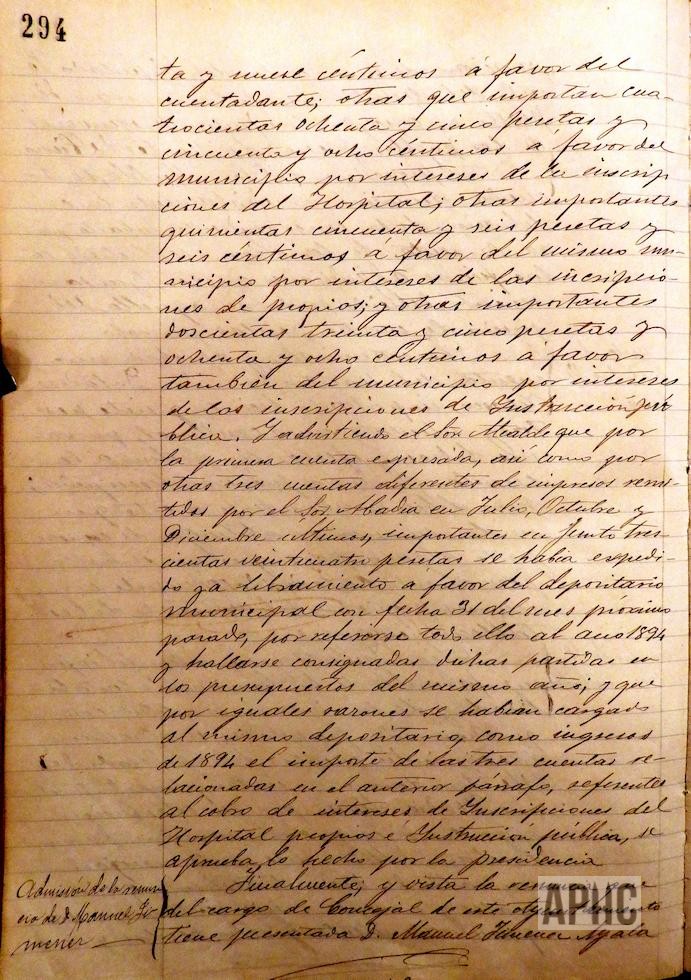 294
ta y nueve céntimos á favor del
cuentadante; otras que importan cua-
trocientas ochenta y cinco pesetas y
cincuenta y ocho céntimos á favor del
municipio por intereses de la inscrip
ciones del Hospital; otras importantes
quinientas cincuenta y seis pesetas y
seis céntimos á favor del mismo mu-
nicipio por intereses de las incripcio-
nes de propios; y otras importantes
doscientas treinta y cinco pesetas y
ochenta y ocho centimos a favor
también del municipio por intereses
de las inscripciones de Instrucción pú
blica. Y advirtiendo el Sor. Alcalde que por
la primera cuenta expresada, asi como por
otras tres cuentas diferentes de ingresos remi-
tidas por el Sor. Abadia en Julio, Octubre y
Diciembre últimos, importantes en junto tres-
cientas veinticuatro pesetas se habia expedi-
do ya libramiento a favor del depositario
municipal con fecha 31 del mes próximo
pasado, por referirse todo ello al año 1894
y hallarse consignadas dichas partidas en
los presupuestos del mismo año; y que
por iguales razones se habian cargado
al mismo depositario, como ingresos
de 1894 el importe de las tres cuentas re-
lacionadas en el anterior párrafo, referentes
al cobro de intereses de Inscripciones del
Hospital propios é Instruccion pública, se
aprueba lo hecho por la presidencia
Finalmente; y vista la renuncia que
del cargo de Concejal de este
tiene presentada D. Manuel Jimenez Ayala
Admisión de la renun
cia de D. Manuel Ji
menez
APMC